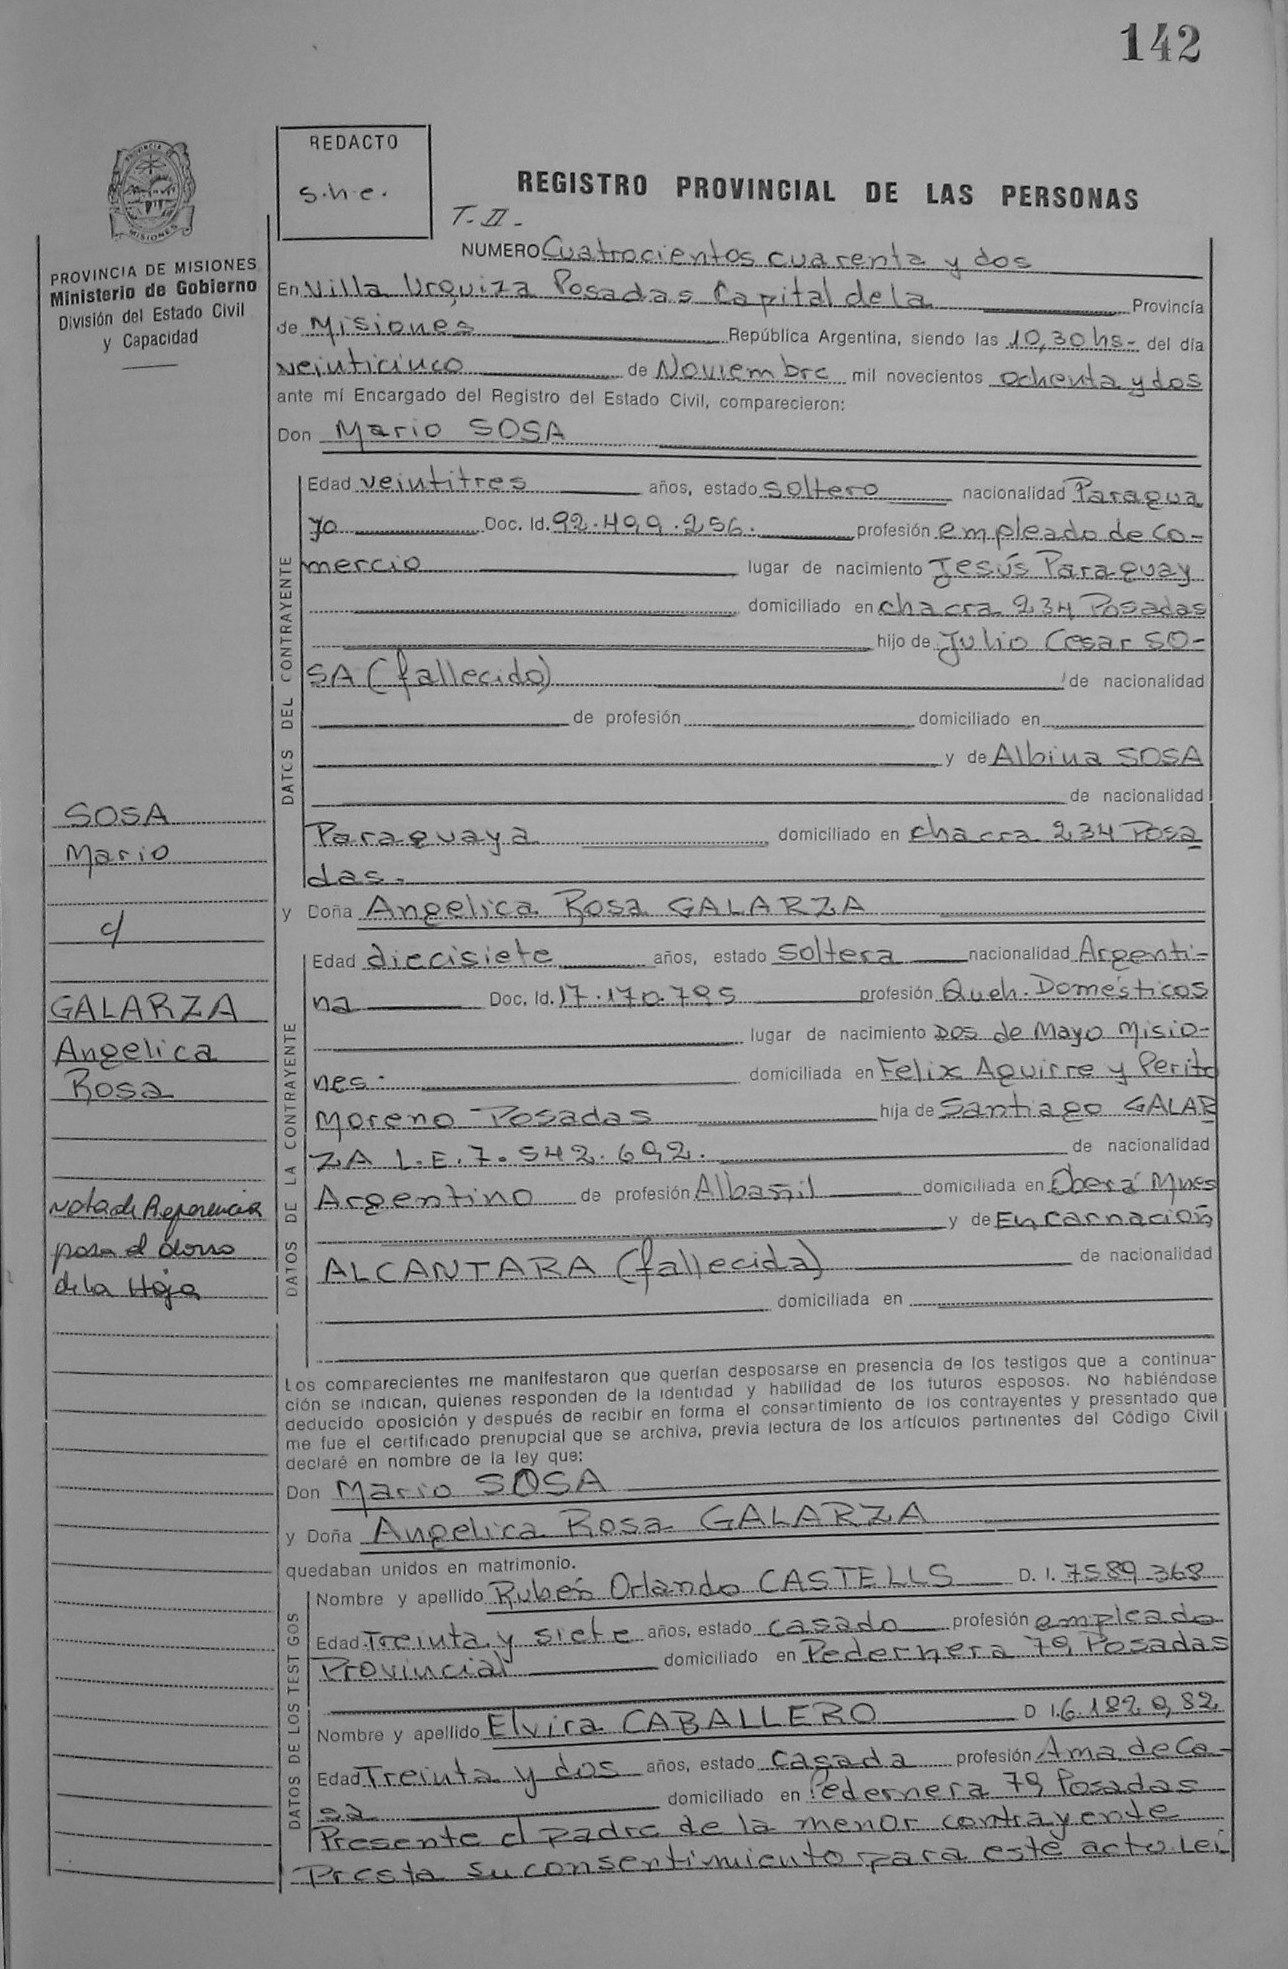 142
REDACTO
s.h.e.
REGISTRO PROVINCIAL DE LAS PERSONAS
T. II -
PROVINCIA DE MISIONES
Ministerio de Gobierno
División del Estado Civil
y Capacidad
NUMERO Cuatrocientos cuarenta y dos
En Villa Urquiza Posadas Capital de la Provincia
de Misiones República Argentina, siendo las 10,30 hs- del día
veinticinco de Noviembre mil novecientos ochenta y dos
ante mí Encargado del Registro del Estado Civil, comparecieron:
Don Mario SOSA
DATOS DEL CONTRAYENTE
Edad veintitres años, estado soltero nacionalidad Paragua
yo Doc. Id. 92.499.256. profesión empleado de co-
mercio lugar de nacimiento Jesús Paraguay
domiciliado en chacra 234 Posadas
hijo de Julio Cesar SO-
SA (fallecido) de nacionalidad
de profesión domiciliado en
y de Albina SOSA
de nacionalidad
Paraguaya domiciliado en chacra 234 Posa
das.
y Doña Angelica Rosa GALARZA
DATOS DE LA CONTRAYENTE
Edad diecisiete años, estado soltera nacionalidad Argenti-
na Doc. Id. 17.170.795 profesión Queh. Domésticos
lugar de nacimiento Dos de Mayo Misio-
nes. domiciliada en Felix Aguirre y Perito
Moreno Posadas hija de Santiago GALAR
ZA L.E. 7.542.692. de nacionalidad
Argentino de profesión Albañil domiciliada en Oberá Mnes
y de Encarnación
ALCANTARA (fallecida) de nacionalidad
domiciliada en
SOSA
Mario
c/
GALARZA
Angelica
Rosa
Nota de Referencia
pasa al dorso
de la Hoja
Los comparecientes me manifestaron que querían desposarse en presencia de los testigos que a continua-
ción se indican, quienes responden de la identidad y habilidad de los futuros esposos. No habiéndose
deducido oposición y después de recibir en forma el consentimiento de los contrayentes y presentado que
me fue el certificado prenupcial que se archiva, previa lectura de los artículos pertinentes del Código Civil
declaré en nombre de la ley que:
Don Mario SOSA
y Doña Angelica Rosa GALARZA
quedaban unidos en matrimonio.
DATOS DE LOS TESTIGOS
Nombre y apellido Rubén Orlando CASTELLS D. I. 7589368
Edad Treinta y siete años, estado casado profesión empleado
Provincial domiciliado en Pedernera 79 Posadas
Nombre y apellido Elvira CABALLERO D I. 6.182.982
Edad Treinta y dos años, estado casada profesión Ama de Ca-
sa domiciliado en Pedernera 79 Posadas
Presente el padre de la menor contrayente
Presta su consentimiento para este acto. Leí